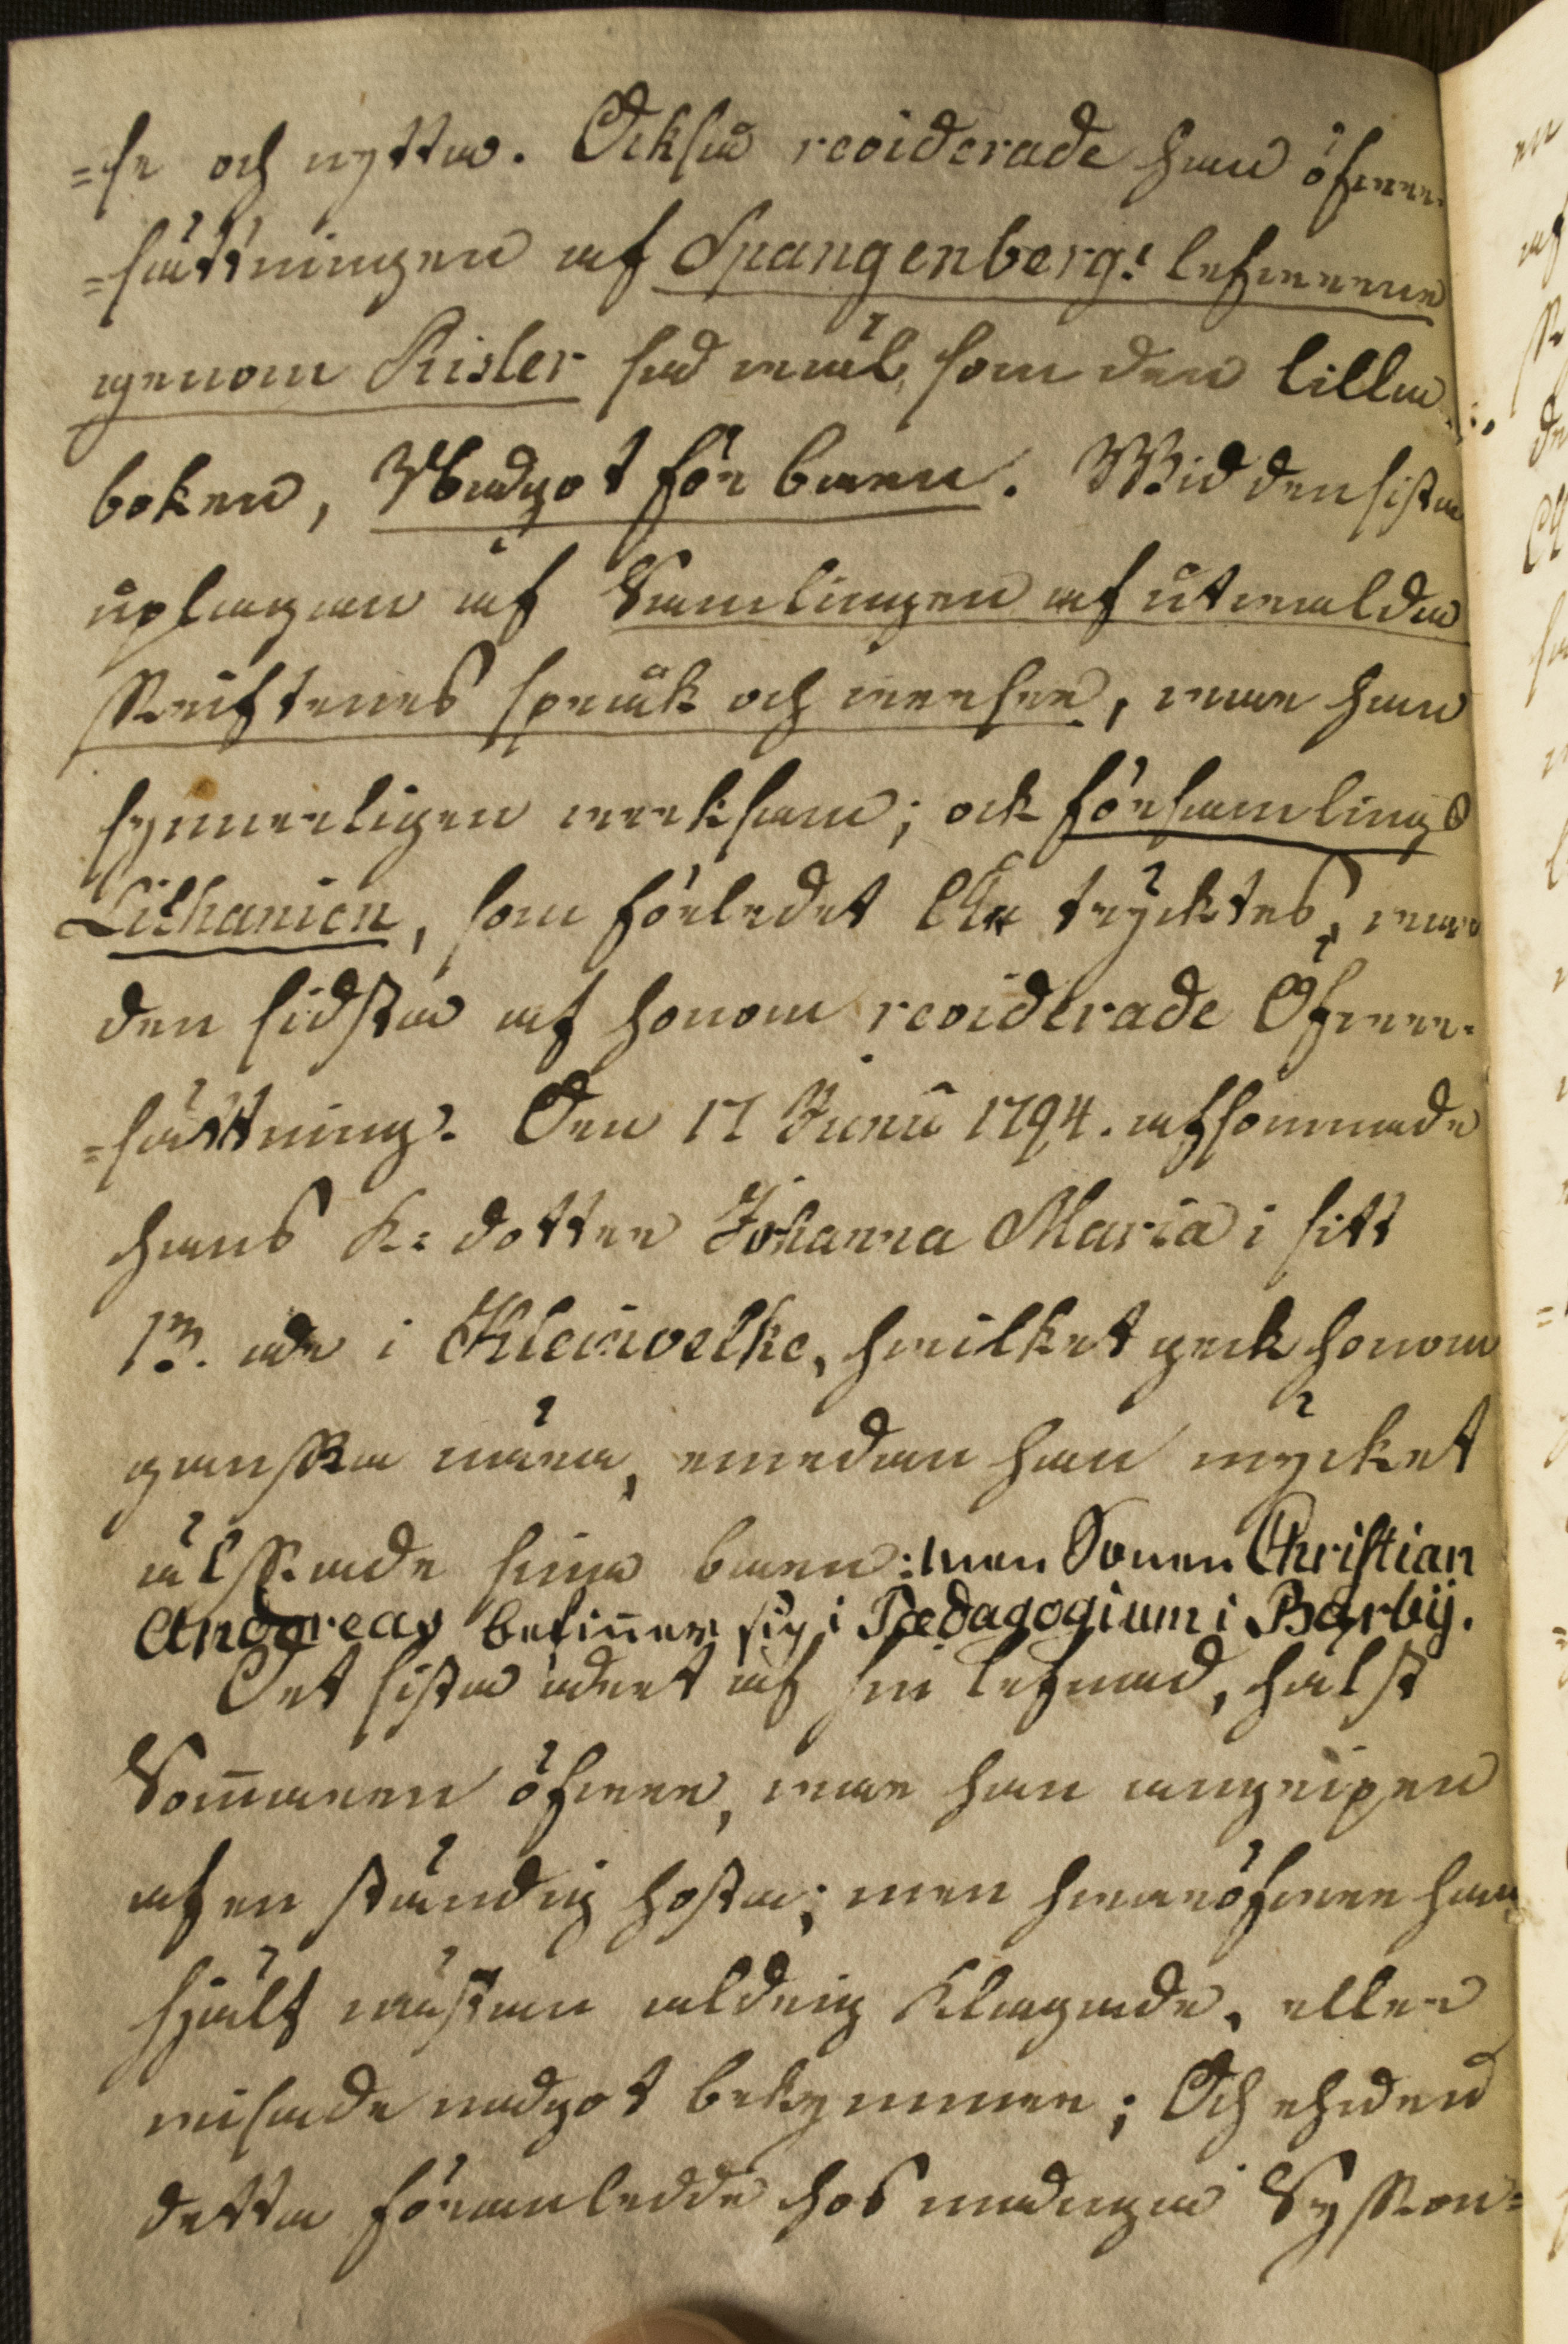 =se och nytta. Ocksad reviderade han öfwer=
=sättningen af Spangenbergs lefwerne
genom Risler sad wäl, som den lilla
boken, Nadgot för barn. Wid den sista
uplagan af Samlingen af utwalda
Skriftenes språk och werser, war han
synnerligen werksam; ock församlings
Lithanien, som förledet År trycktes, war
den sidsta af honom reviderade Öfwer=
=sättning. Den 17 Junii 1794. afsomnade
hans k: dotter Johanna Maria i sitt
13. ade i Kleinwelke, hwilket geck honom
ganska nära, emedan han mycket
älskade sina barn: men Sonen Christian
Andreas befinner sig i Pædagogium i Barby.
Det sista adret af sin lefnad, hälst
Sommaren öfwer, war han angripen
af en ständig hosta; men hwaröfwer han
sjelf nästan aldrig klagade, eller
wisade nadgot bekymmer; Och ehuden
detta föranledde hos nadgra Syskon=